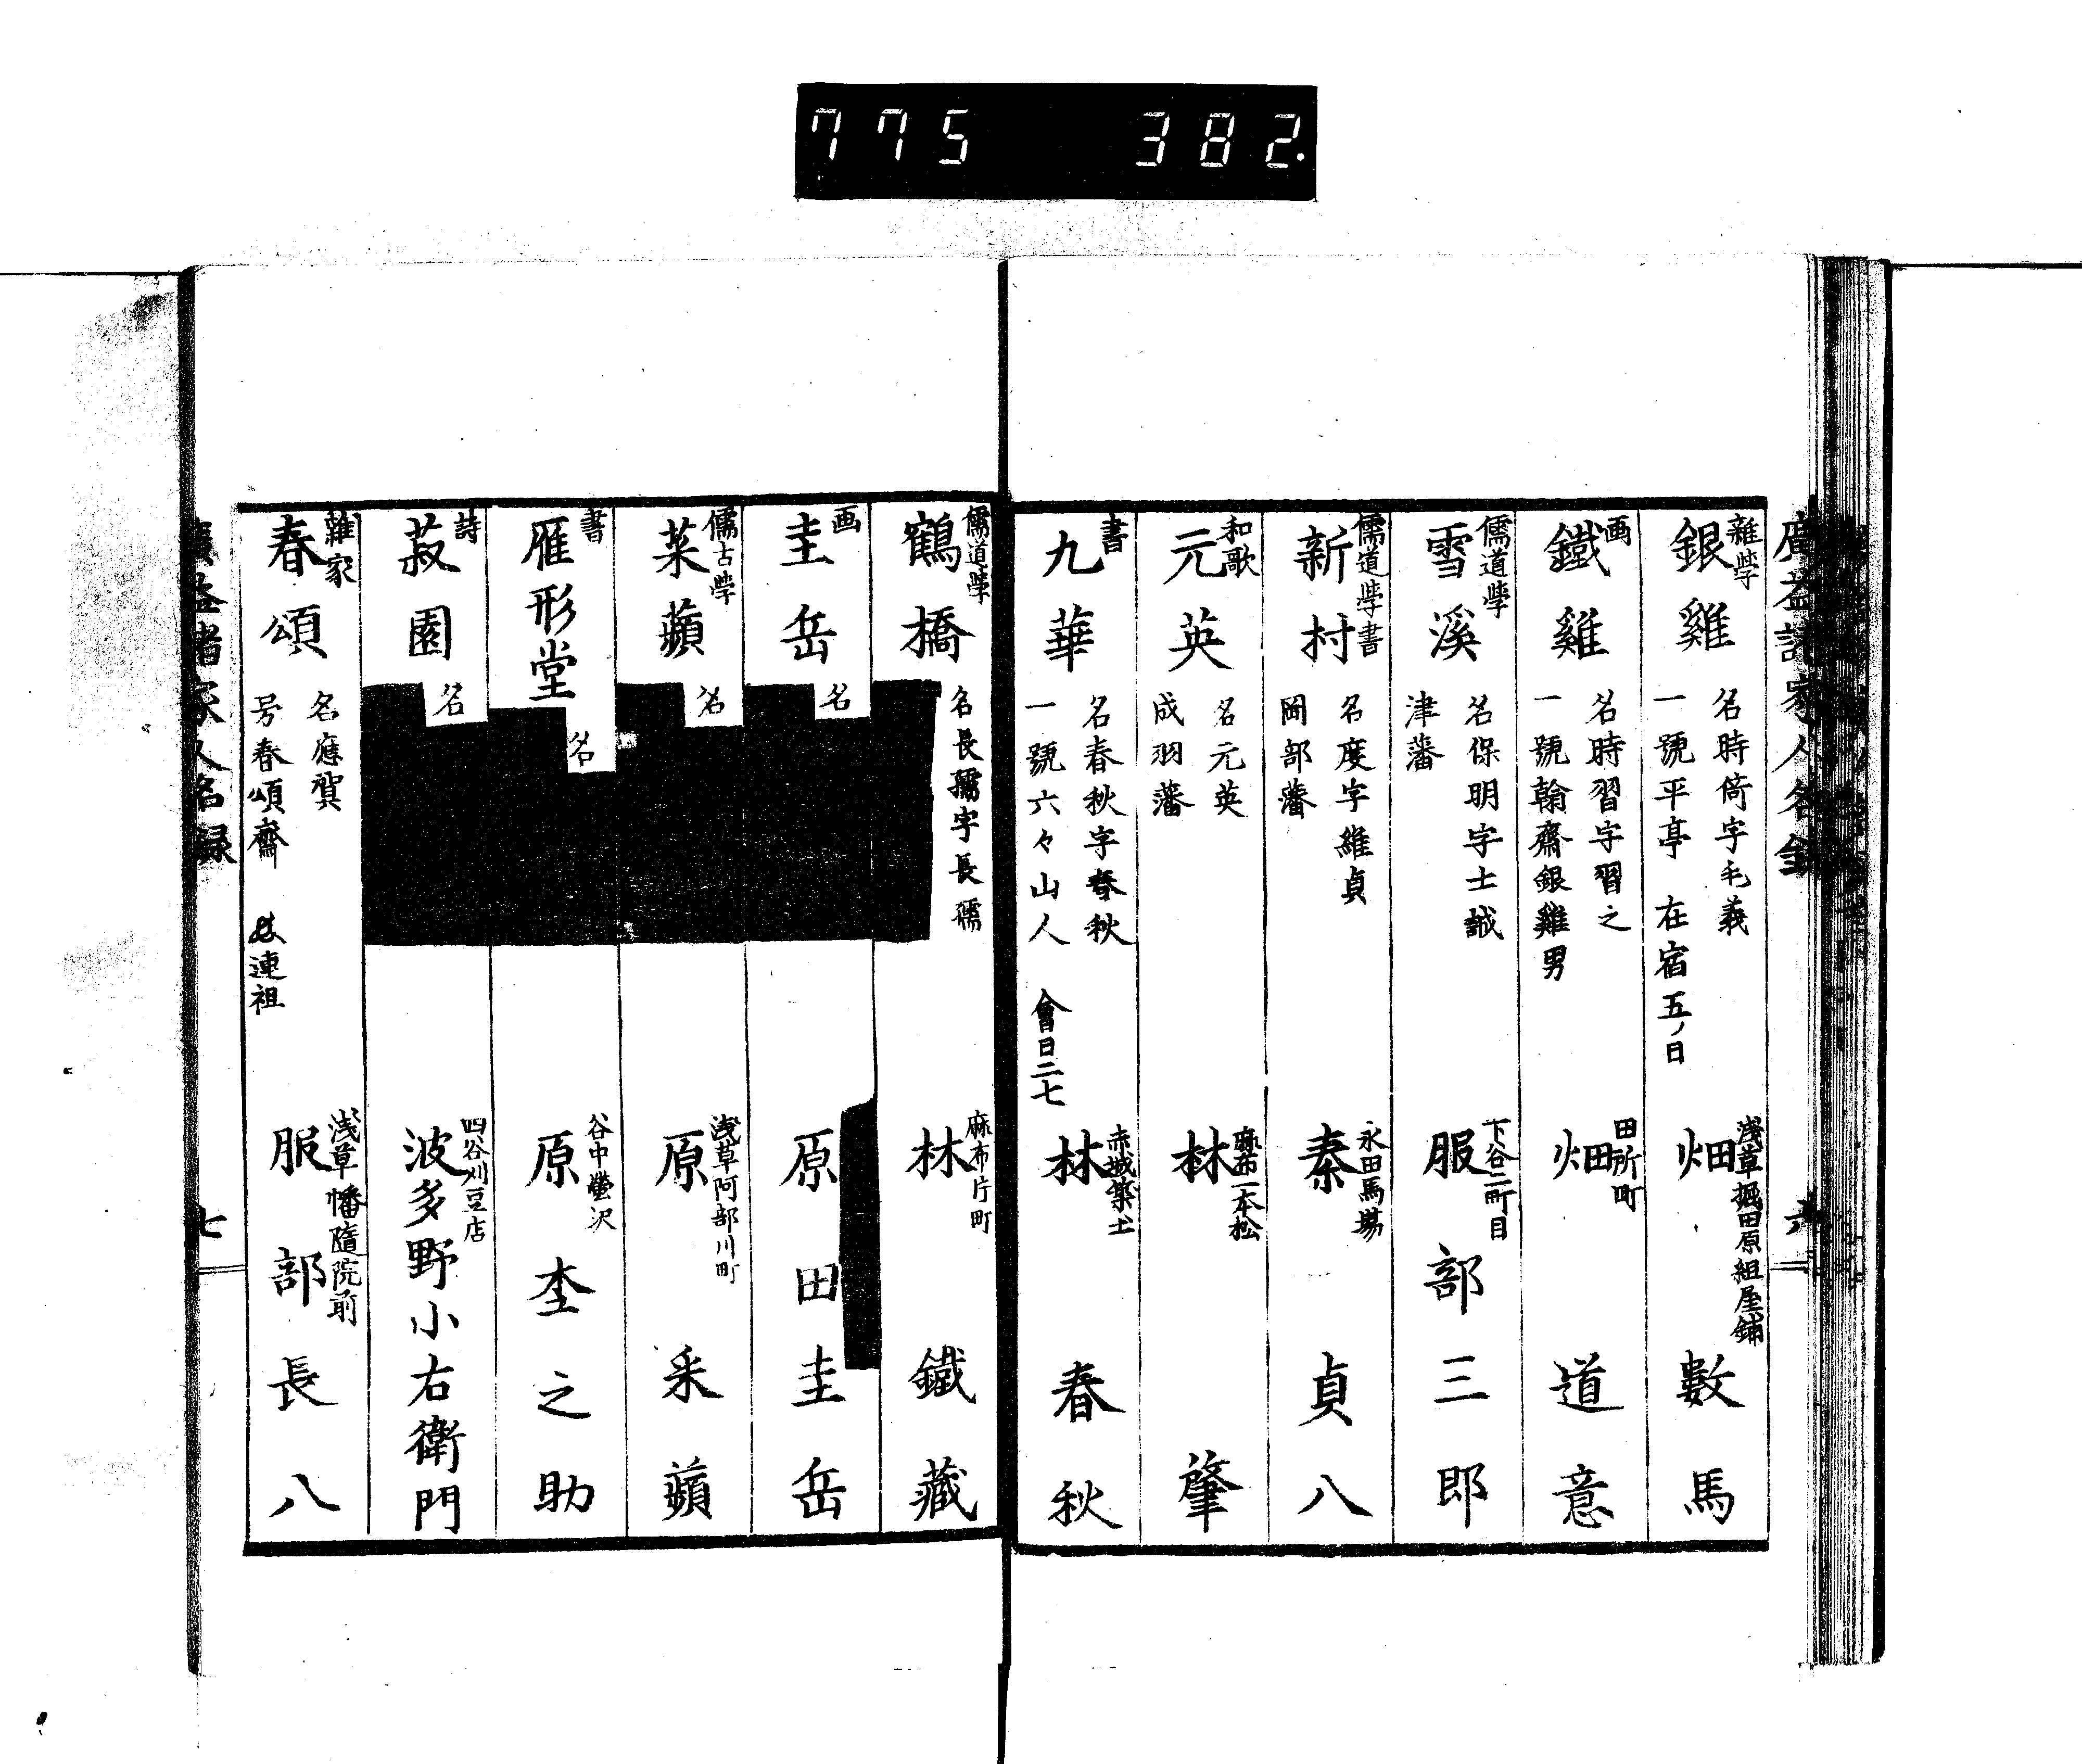 775 382.
雜学
銀雞
名時倚字毛義
一號平亭 在宿五ノ日
浅草堀田原組屋鋪
畑数馬
画
鐵雞
名時習字習之
一號翰齋銀雞男
田所町
畑道意
儒道学
雪溪
名保明字士誠
津藩
下谷二町目
服部三郎
儒道学書
新村
名度字維貞
岡部藩
永田馬場
秦貞八
和歌
元英
名元英
成羽藩
麻布一本松
林肇
書
九華
名春秋字春秋
一號六々山人 會日二七
赤城築土
林春秋
儒道学
鶴橋
名長孺字長孺
麻布片町
林鐵藏
画
圭岳
名
原田圭岳
儒古学
菜蘋
名
浅草阿部川町
原采蘋
書
雁形堂
名
谷中螢沢
原杢之助
詩
菽園
名
四谷刈豆店
波多野小右衛門
雜家
春頌
名應賀
号春頌齋 連祖
浅草幡隨院前
服部長八
七